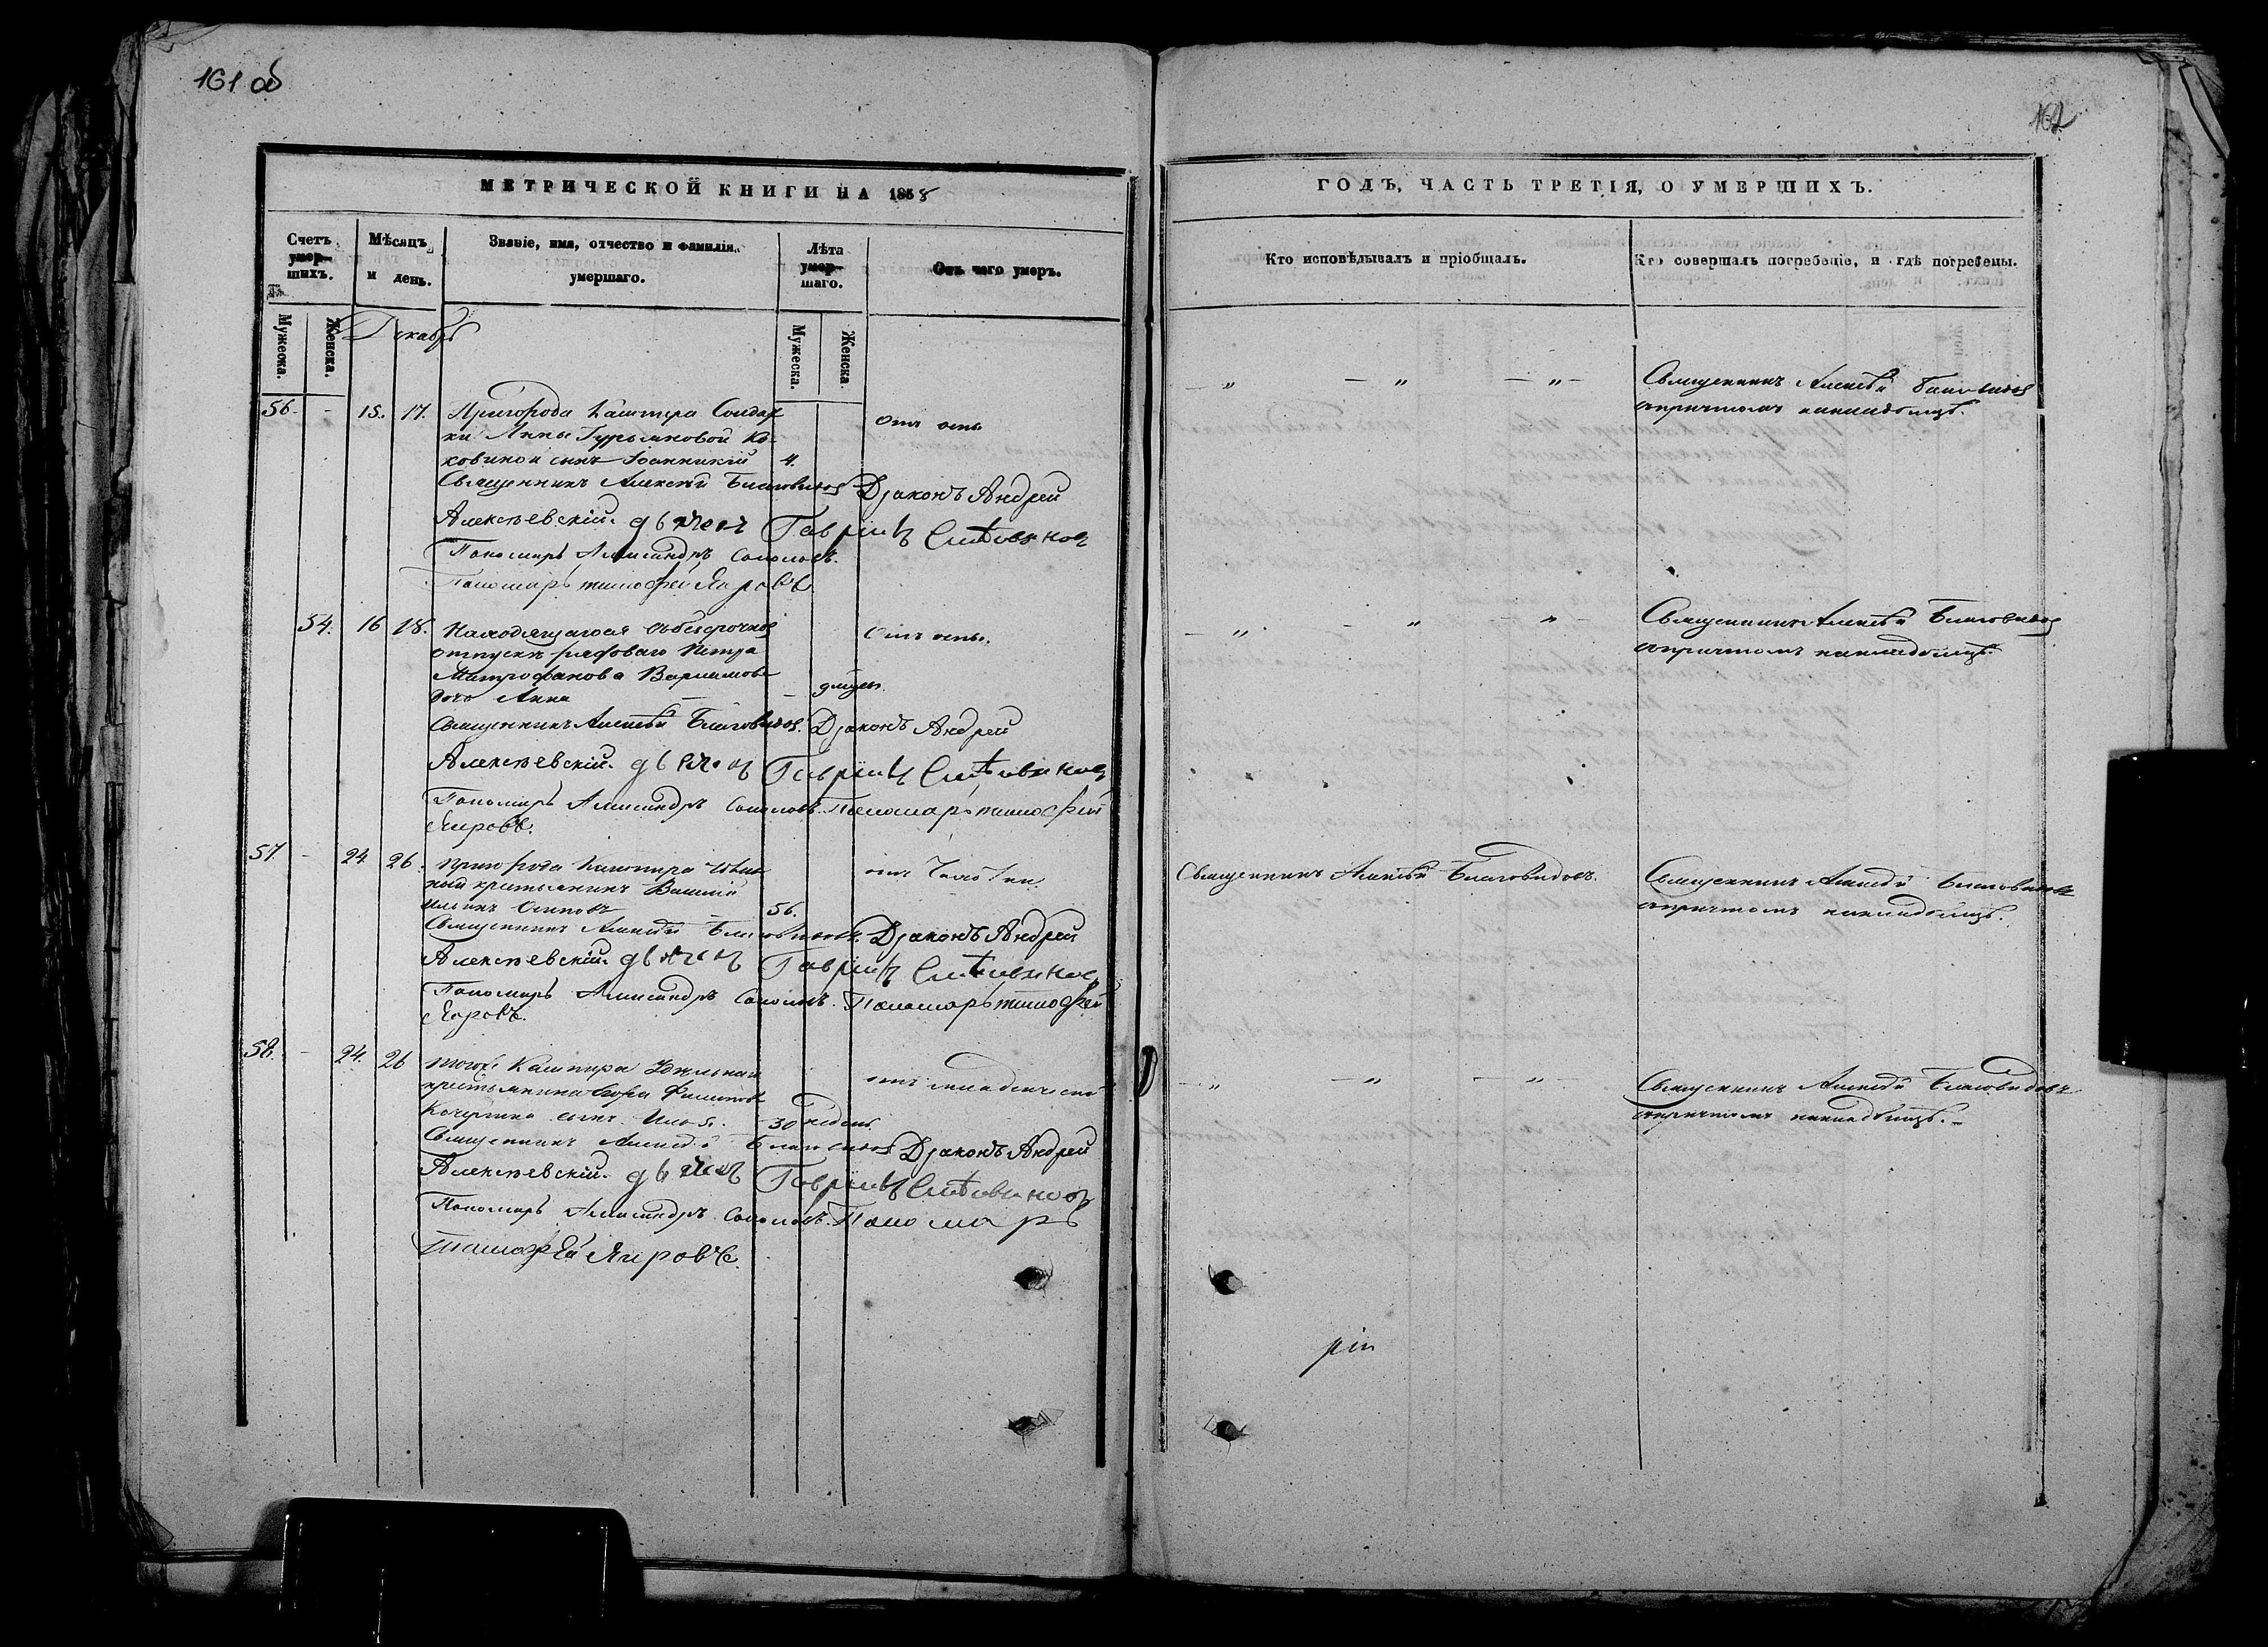 161 об
162
МЕТРИЧЕСКОЙ КНИГИ НА 1858
ГОДЪ, ЧАСТЬ ТРЕТІЯ, О УМЕРШИХЪ.
Счетъ умершихъ.
Мѣсяцъ и день.
Званіе, имя, отчество и фамилія умершаго.
Лѣта умершаго.
Отъ чего умеръ.
Кто исповѣдывалъ и пріобщалъ.
Кто совершалъ погребеніе, и гдѣ погребены.
Мужеска.
Женска.
Мужеска.
Женска.
Декабрь
56. - 15. 17. Пригорода Кашпира Солдат
ки Анны Гурьяновой
сынъ Іоанникій 4.
Отъ оспы
— „ — „ — „ —
Священникъ Алексѣй Благовидовъ
съ причтомъ на кладбищѣ.
Священникъ Алексѣй Благовидовъ Діаконъ Андрей
Алексѣевскій. дьячекъ Гаврiилъ
Пономарь Александръ Соколовъ.
Пономарь Тимофей Яировъ.
54. 16 18. Находящагося въ безсрочномъ
отпуску рядоваго Петра
Митрофанова Варламова
дочь Анна
Отъ оспы.
— „ - „ - „ -
Священникъ Алексѣй Благовидовъ
съ причтомъ на кладбищѣ.
Священникъ Алексѣй Благовидовъ. Діаконъ Андрей
Алексѣевскій. дьячекъ Гаврiилъ
Пономарь Александръ Соколовъ. Пономарь Тимофей
Яировъ.
57. - 24 26. Пригорода Кашпира Удѣль
ный крестьянинъ Василій
Ильинъ Осиповъ 56.
отъ Чахотки.
Священникъ Алексѣй Благовидовъ.
Священникъ Алексѣй Благовидовъ
съ причтомъ на кладбищѣ.
Священникъ Алексѣй Благовидовъ. Діаконъ Андрей
Алексѣевскій. дьячекъ Гаврiилъ
Пономарь Александръ Соколовъ. Пономарь Тимофей
Яировъ.
58. - 24. 26 Тогоже Кашпира Удѣльнаго
крестьянина Филипова
сынъ 30 недѣль
отъ младенческой
— „ — „ — „ —
Священникъ Алексѣй Благовидовъ
съ причтомъ на кладбищѣ.
Священникъ Алексѣй Благовидовъ Діаконъ Андрей
Алексѣевскій. дьячекъ Гаврiилъ
Пономарь Александръ Соколовъ. Пономарь
Тимофей Яировъ.